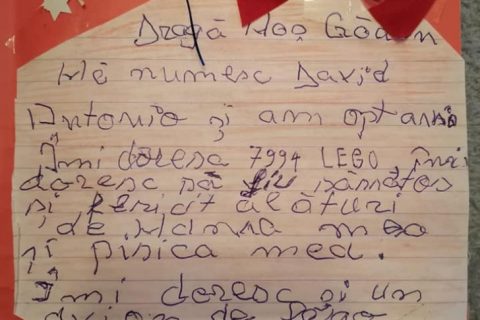 Dragă Moș Crăciun
Mă numesc David
Antonio și am opt anni
Îmi doresc 7994 LEGO, îmi
doresc să fiu sănătos
și fericit alături
de Mamna mea
și pisica mea.
Îmi doresc și un
avion de